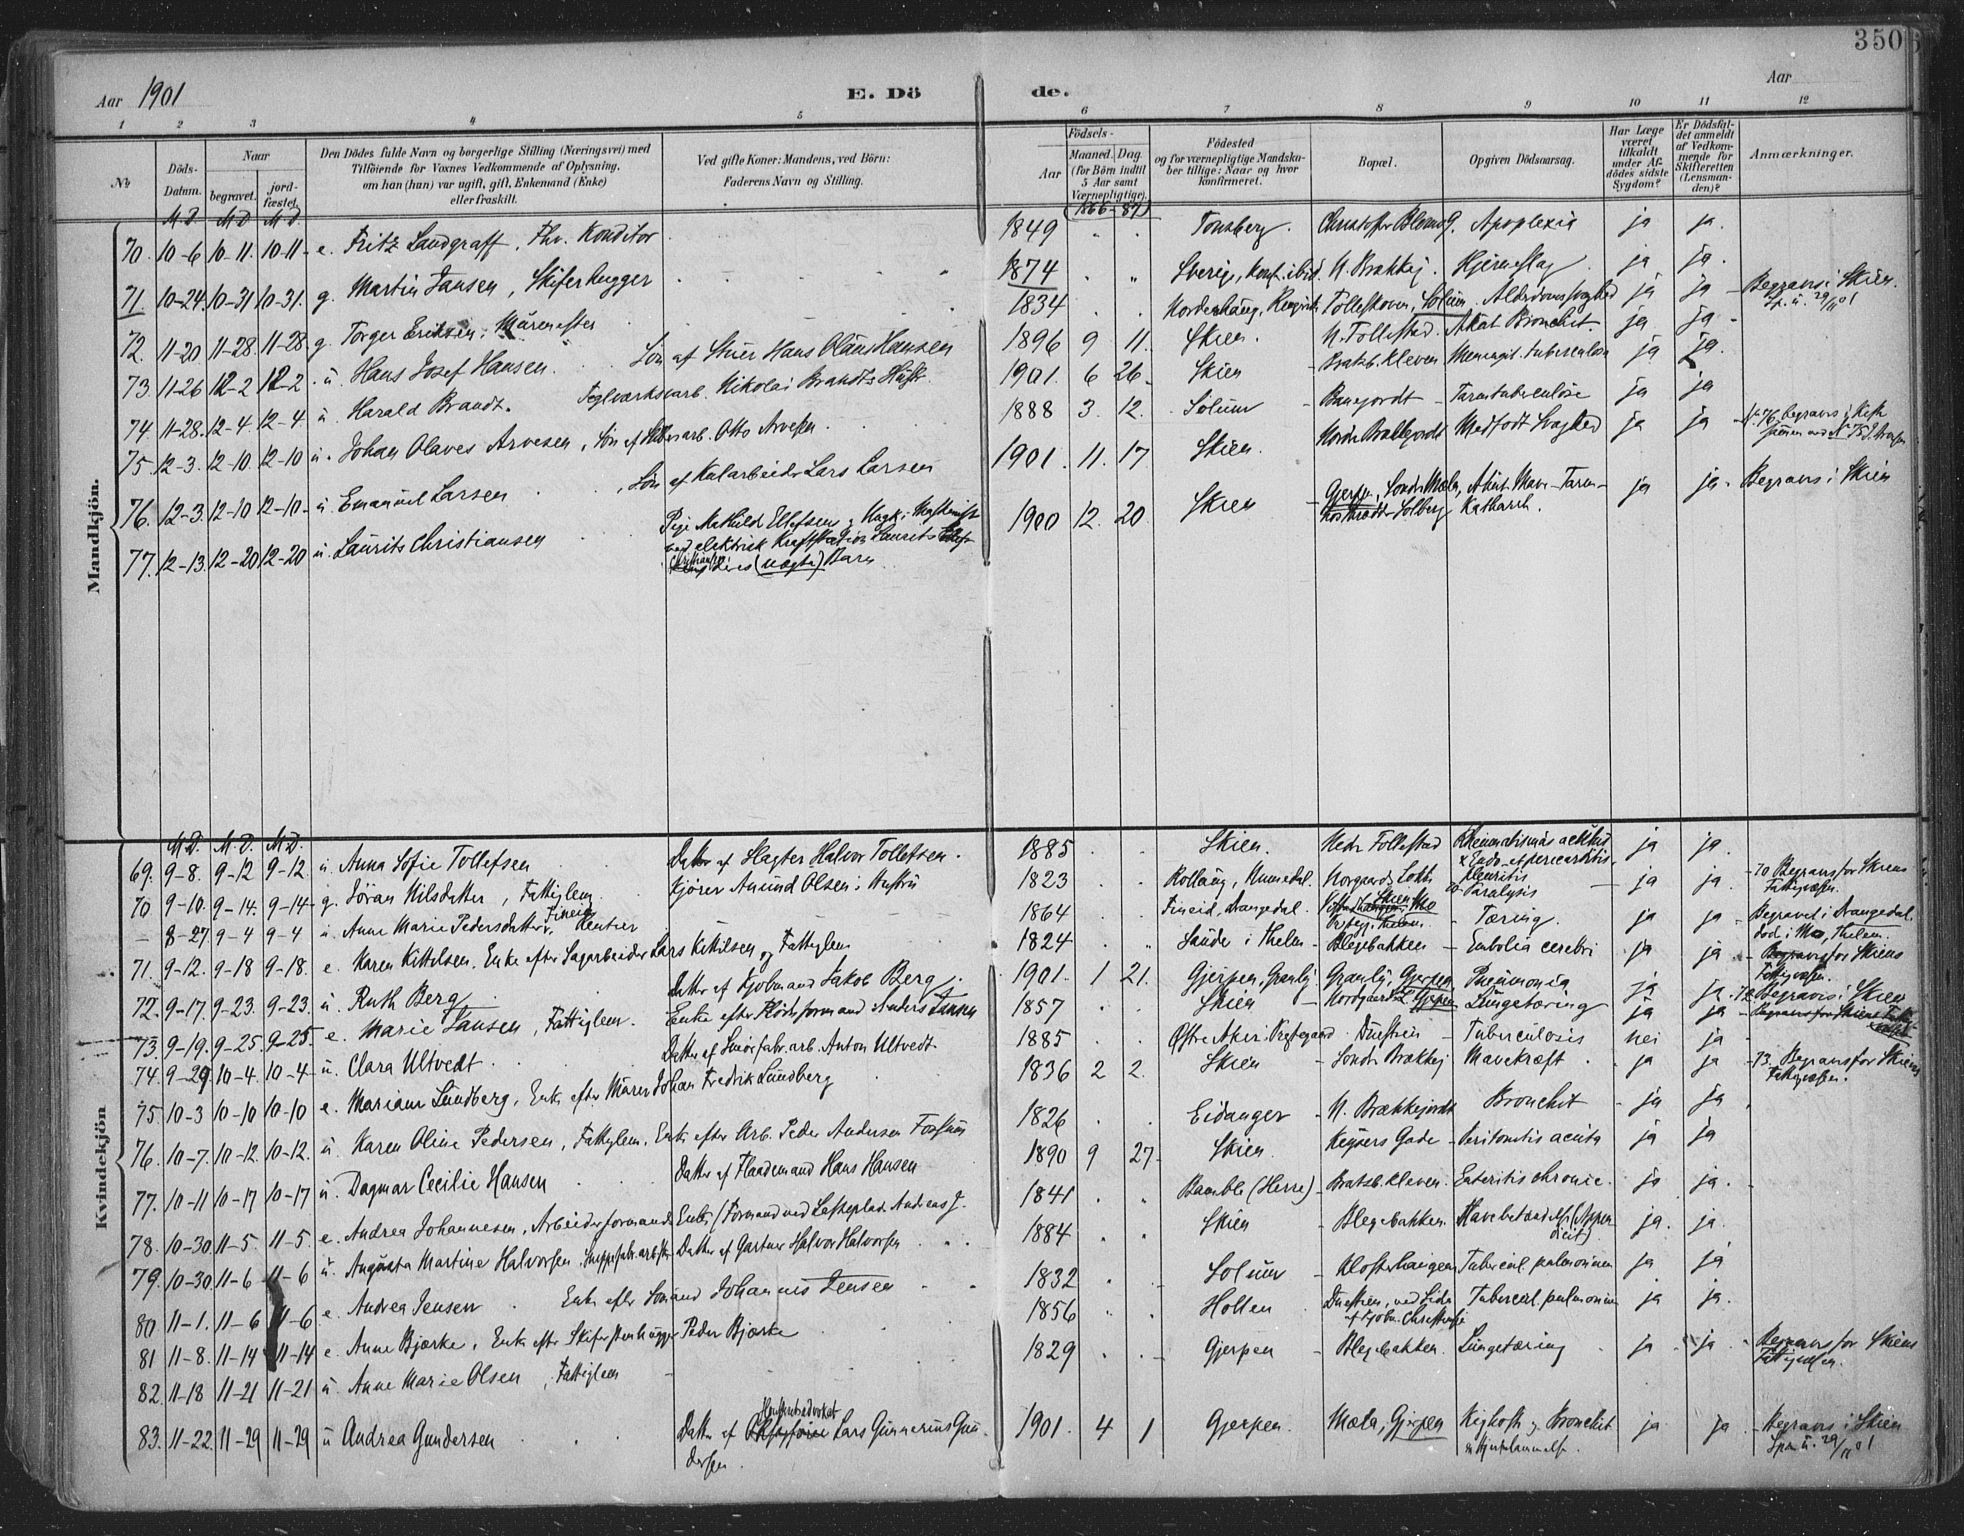 350
Aar 1901
E. Dö de.
Aar
1 2 3 4 5 6 7 8 9 10 11 12
No
Döds-Datum.
Naar
begravet.
jord-fæstet.
Den Dödes fulde Navn og borgerlige Stilling (Næringsvei) med
Tilföiende for Voxnes Vedkommende af Oplysning,
om han (hun) var ugift, gift, Enkemand (Enke)
eller fraskilt.
Ved gifte Koner: Mandens, ved Börn:
Faderens Navn og Stilling.
Födsels-
Aar
Maaned. Dag.
(for Börn indtil
5 Aar samt
Værnepligtige).
Födested
og for værnepligtige Mandska-
ber tillige: Naar og hvor
konfirmeret.
Bopæl.
Opgiven Dödsaarsag.
Har Læge
været
tilkaldt
under Af-
dödes sidste
Sygdom?
Er Dödsfal-
det anmeldt
af Vedkom-
mende for
Skifteretten
(Lensman-
den)?
Anmærkninger.
Mandkjön.
M. D. M. D. M. D. (1866-87)
70. 10-6 10-11. 10-11- e. Fritz Landgraff, Fhv. Konditor 1849 Tonsberg. Apoplexia ja ja.
71. 10-24. 10-31 10-31. g. Martin Jansen, Skiferhugger 1874 Sverig, N. Brækkej. Hjerneslag ja ja. Begravs i Skien.
72. 11-20 11-28. 11-28 g. Torger Eriksen, Murmester 1834 Tollefskoven, Solum. Alderdomssvaghed ja ja
73. 11-26 12-2 12-2 u. Hans Josef Hansen. Søn af Stuer Hans Olaus Hansen 1896 9 11. Skien. N. Follestad. Akut Bronchit. ja ja
74. 11-28. 12-4. 12-4 u Harald Brandt. Teglværksarb. Nikolai Brandts 1901. 6 26 Skien Bratsb. Kleven Meningit. tuberculosa ja ja.
75. 12-3. 12-10. 12-10 u. Johan Olaves Arvesen, Søn af Otto Arvesen 1888 3. 12. Solum Tarmtuberculose ja ja
76. 12-3. 12-10 12-10- u Emanuel Larsen Søn af Kularbeider Lars Larsen 1901. 11. 17. Skien. Medfødt Svaghed ja ja
77. 12-13. 12-20 12-20 u. Laurits Christiansen Pige Mathild Ellefsen og 1900 12. 20 Skien Gjerpen, Søndr Mæla, Akut Mave-Tarm- ja ja. Begravs i Skien
ved elektrisk Kraftstation Laurits Solberg Katharrh.
Christiansen deres (uægte) Barn
Kvindekjön
M. D. M. D. M. D.
69. 9-8. 9-12 9-12 u. Anna Sofie Tollefsen Datter af Slagter Halvor Tollefsen. 1885 Skien. Nedr Follestad Rheumatismus acutus ja ja.
70 9-10. 9-14. 9-14- g. Jöran Nilsdatter, Fattiglem Kjörer Amund Olsen's Hustru 1823 Paralysis ja ja. 70 Begravs for Skiens
Fattigvæsen.
- 8-27. 9-4 9-4 u. Anne Marie Pedersdatter, Fineid 1864 Fineid, Drangedal. Tæring. ja ja Begravet i Drangedal.
Död i Mo, Thelem.
71. 9-12. 9-18 9-18. e. Karen Kittilsen. Enke efter Sagarbeider Lars Kittilsen og Fattiglem 1824 Saude i Thelm Blegebakken Embolia cerebri ja ja
72. 9-17. 9-23. 9-23. u. Ruth Berg Datter af Kjobmand Jakob Berg 1901. 1 21. Gjerpen, Granlij Granlij, Gjerpen Pneumonia ja ja. 72 Begravs i Skien
73. 9-19. 9-25. 9-25. e. Marie Jansen, Fattiglem. Enke efter Flödsformand Anders Jansen 1857 Skien Lungetæring ja ja
74. 9-29 10-4. 10-4 u. Clara Ultvedt Datter af Anton Ultvedt. 1885 Östre Aker Tuberculosis nei ja
75. 10-3 10-10 10-10 e. Mariane Lundberg, Enke efter Murer Johan Fredrik Lundberg 1836 2 2. Skien Søndr Brækkej Mavekræft ja ja 73. Begravs for Skiens
Fattigvæsen.
76. 10-7. 10-12. 10-12. u. Karen Oline Pedersen, Fattiglem, Enke efter Arb. Peder Andersen 1826 Eidanger N. Brækkejordet Bronchit ja ja
77. 10-11 10-17 10-17 u. Dagmar Cecilie Hansen Datter af Flaademand Hans Hansen 1890 9 27. Skien. Keysers Gade Peritonitis acuta ja ja
78. 10-30. 11-5. 11-5. e. Andrea Johannesen, Arbeiderformands Enke (Formand ved Andreas J. 1841 Bamble (Herre) Bratsb. Kleven. Enteritis chronic. ja ja.
79. 10-30. 11-6 11-6 u. Augusta Martine Halvorsen, Datter af Gartner Halvor Halvorsen 1884 Skien Blegebakken. (Appen-
dicit) ja. ja.
80 11-1. 11-6 11-6. e. Andrea Jensen Enke efter Sömand Johannes Jensen 1832 Solum Klosterhaugen Tubercul. pulmonum ja ja
81 11-8. 11-14 11-14 e. Anne Bjærke, Enke efter Peder Bjærke 1856 Holten Tubercul. pulmonum ja ja.
82. 11-18 11-21 11-21 u. Anne Marie Olsen, Fattiglem 1829 Gjerpen Blegebakken. Lungetæring ja ja Begravs for Skiens
Fattigvæsen.
83. 11-22. 11-29 11-29 u Andrea Gundersen Datter af Lars Gunnerius Gun-
dersen. 1901. 4 1 Gjerpen. Mæla, Gjerpen Kighoste og Bronchit ja ja Begravs i Skien